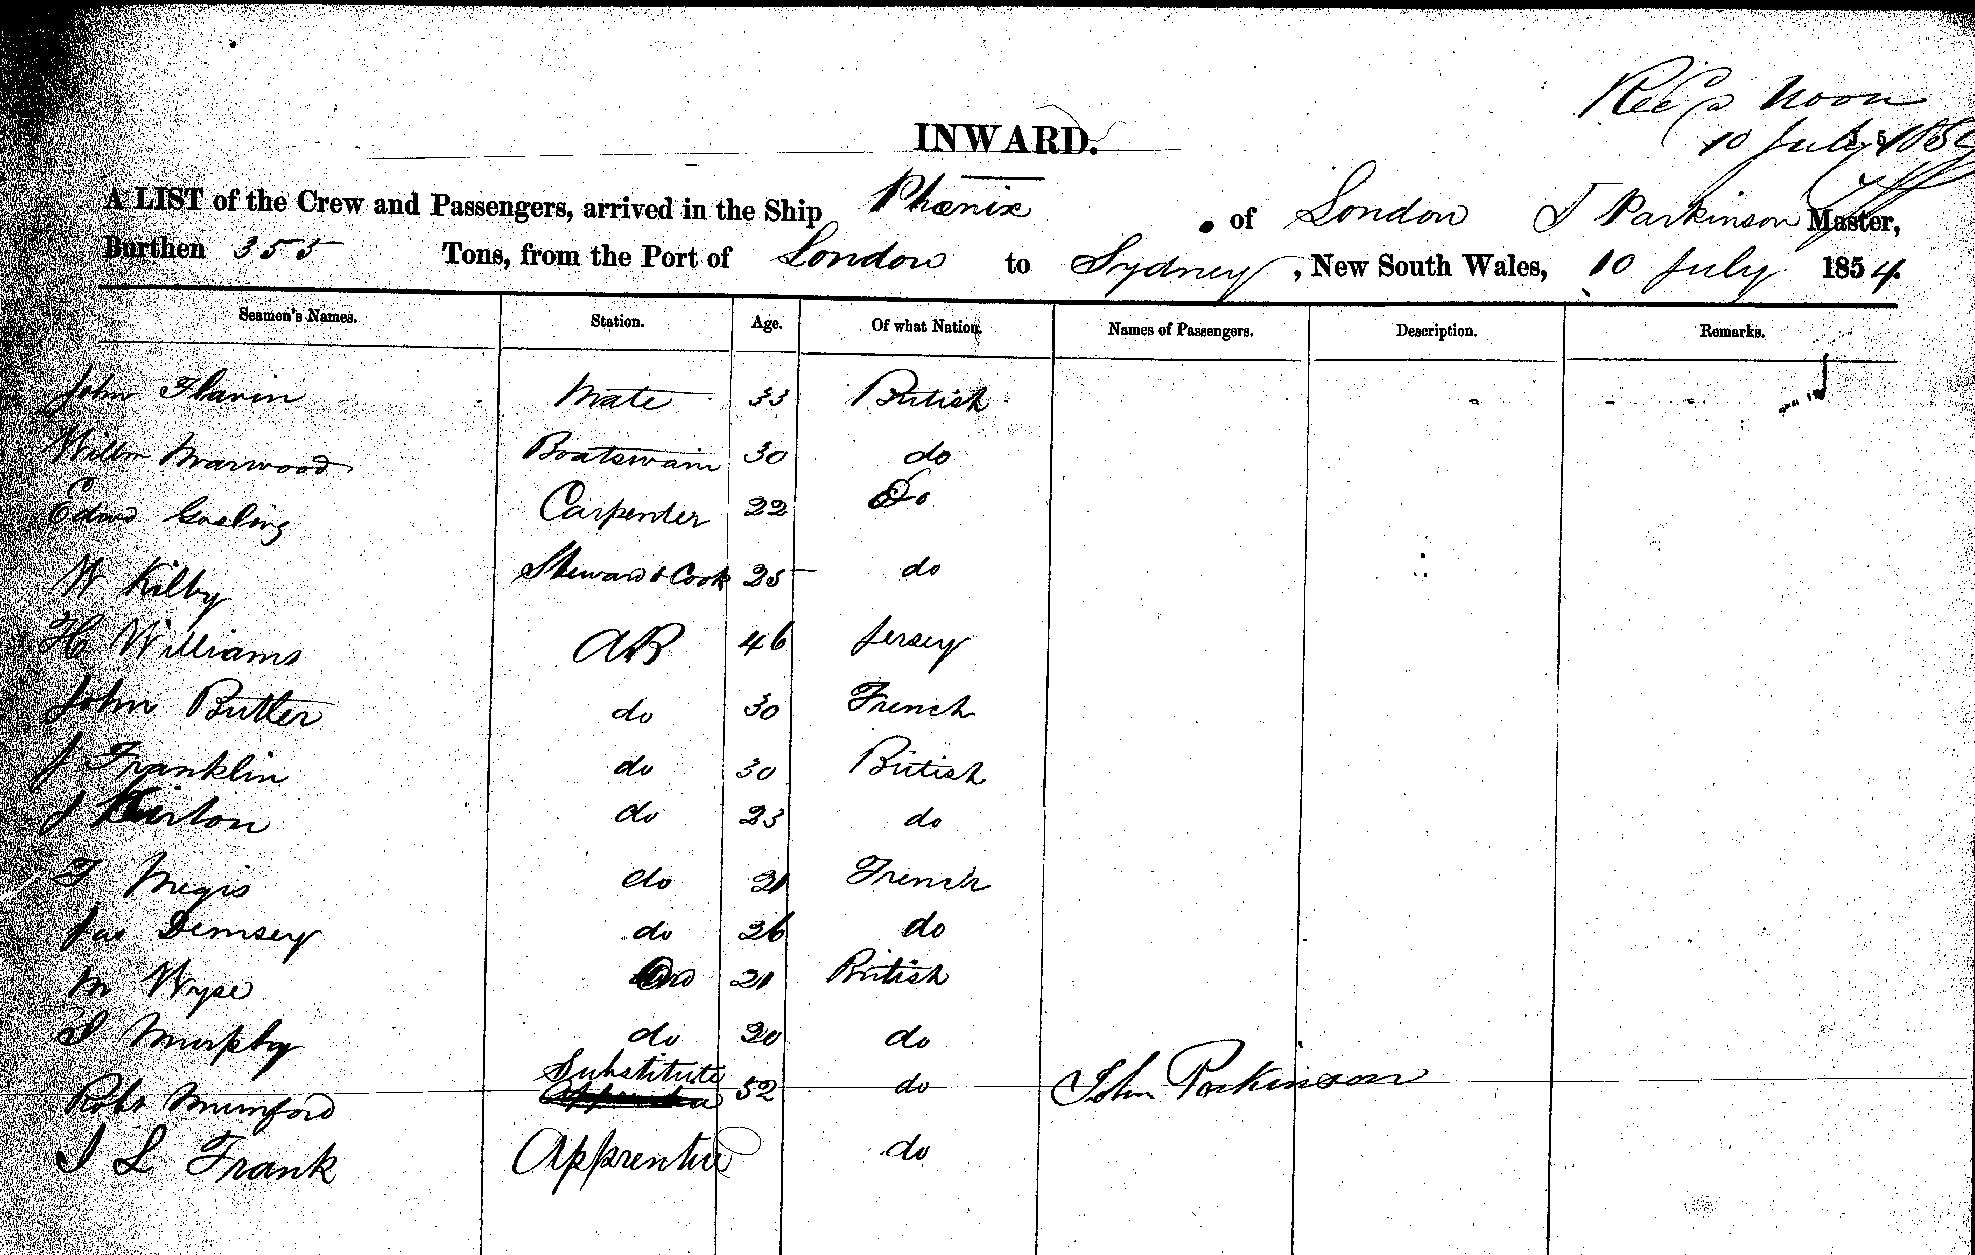 Rec'd Noon
10 July 1854
INWARD.
A LIST of the Crew and Passengers, arrived in the Ship Phœnix of London J Parkinson Master,
Burthen 355 Tons, from the Port of London to Sydney, New South Wales, 10 July 1854
Seamen's Names. Station. Age. Of what Nation. Names of Passengers. Description. Remarks.
John Flavin Mate 33 British
Willm Marwood Boatswain 30 do
Edwd Gosling Carpenter 22 Do
W Kilby Steward & Cook 25 do
H Williams AB 46 Jersey
John Butler do 30 French
J Franklin do 30 British
J Kirton do 23 do
F Megis do 21 French
Jas Demsey do 26 do
M Wyse Ord 21 British
T Murphy do 20 do
Robt Mumford Substitute 52 do John Parkinson
J L Frank Apprentice do